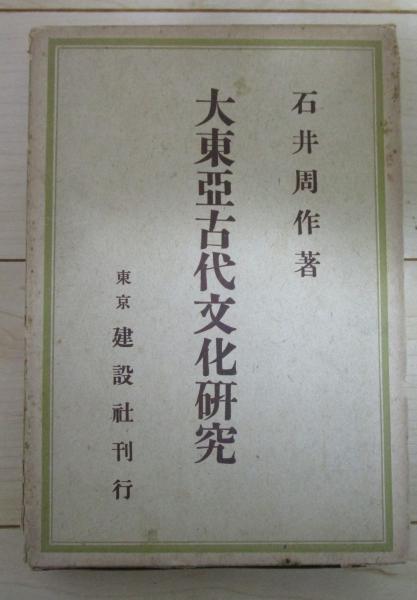 石井周作著
大東亞古代文化研究
東京 建設社刊行